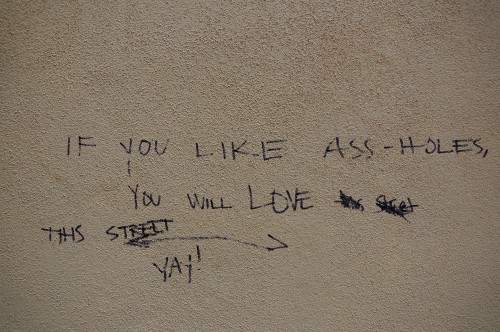 IF YOU LIKE ASS-HOLES,
YOU WILL LOVE
THIS STREET
YAY!